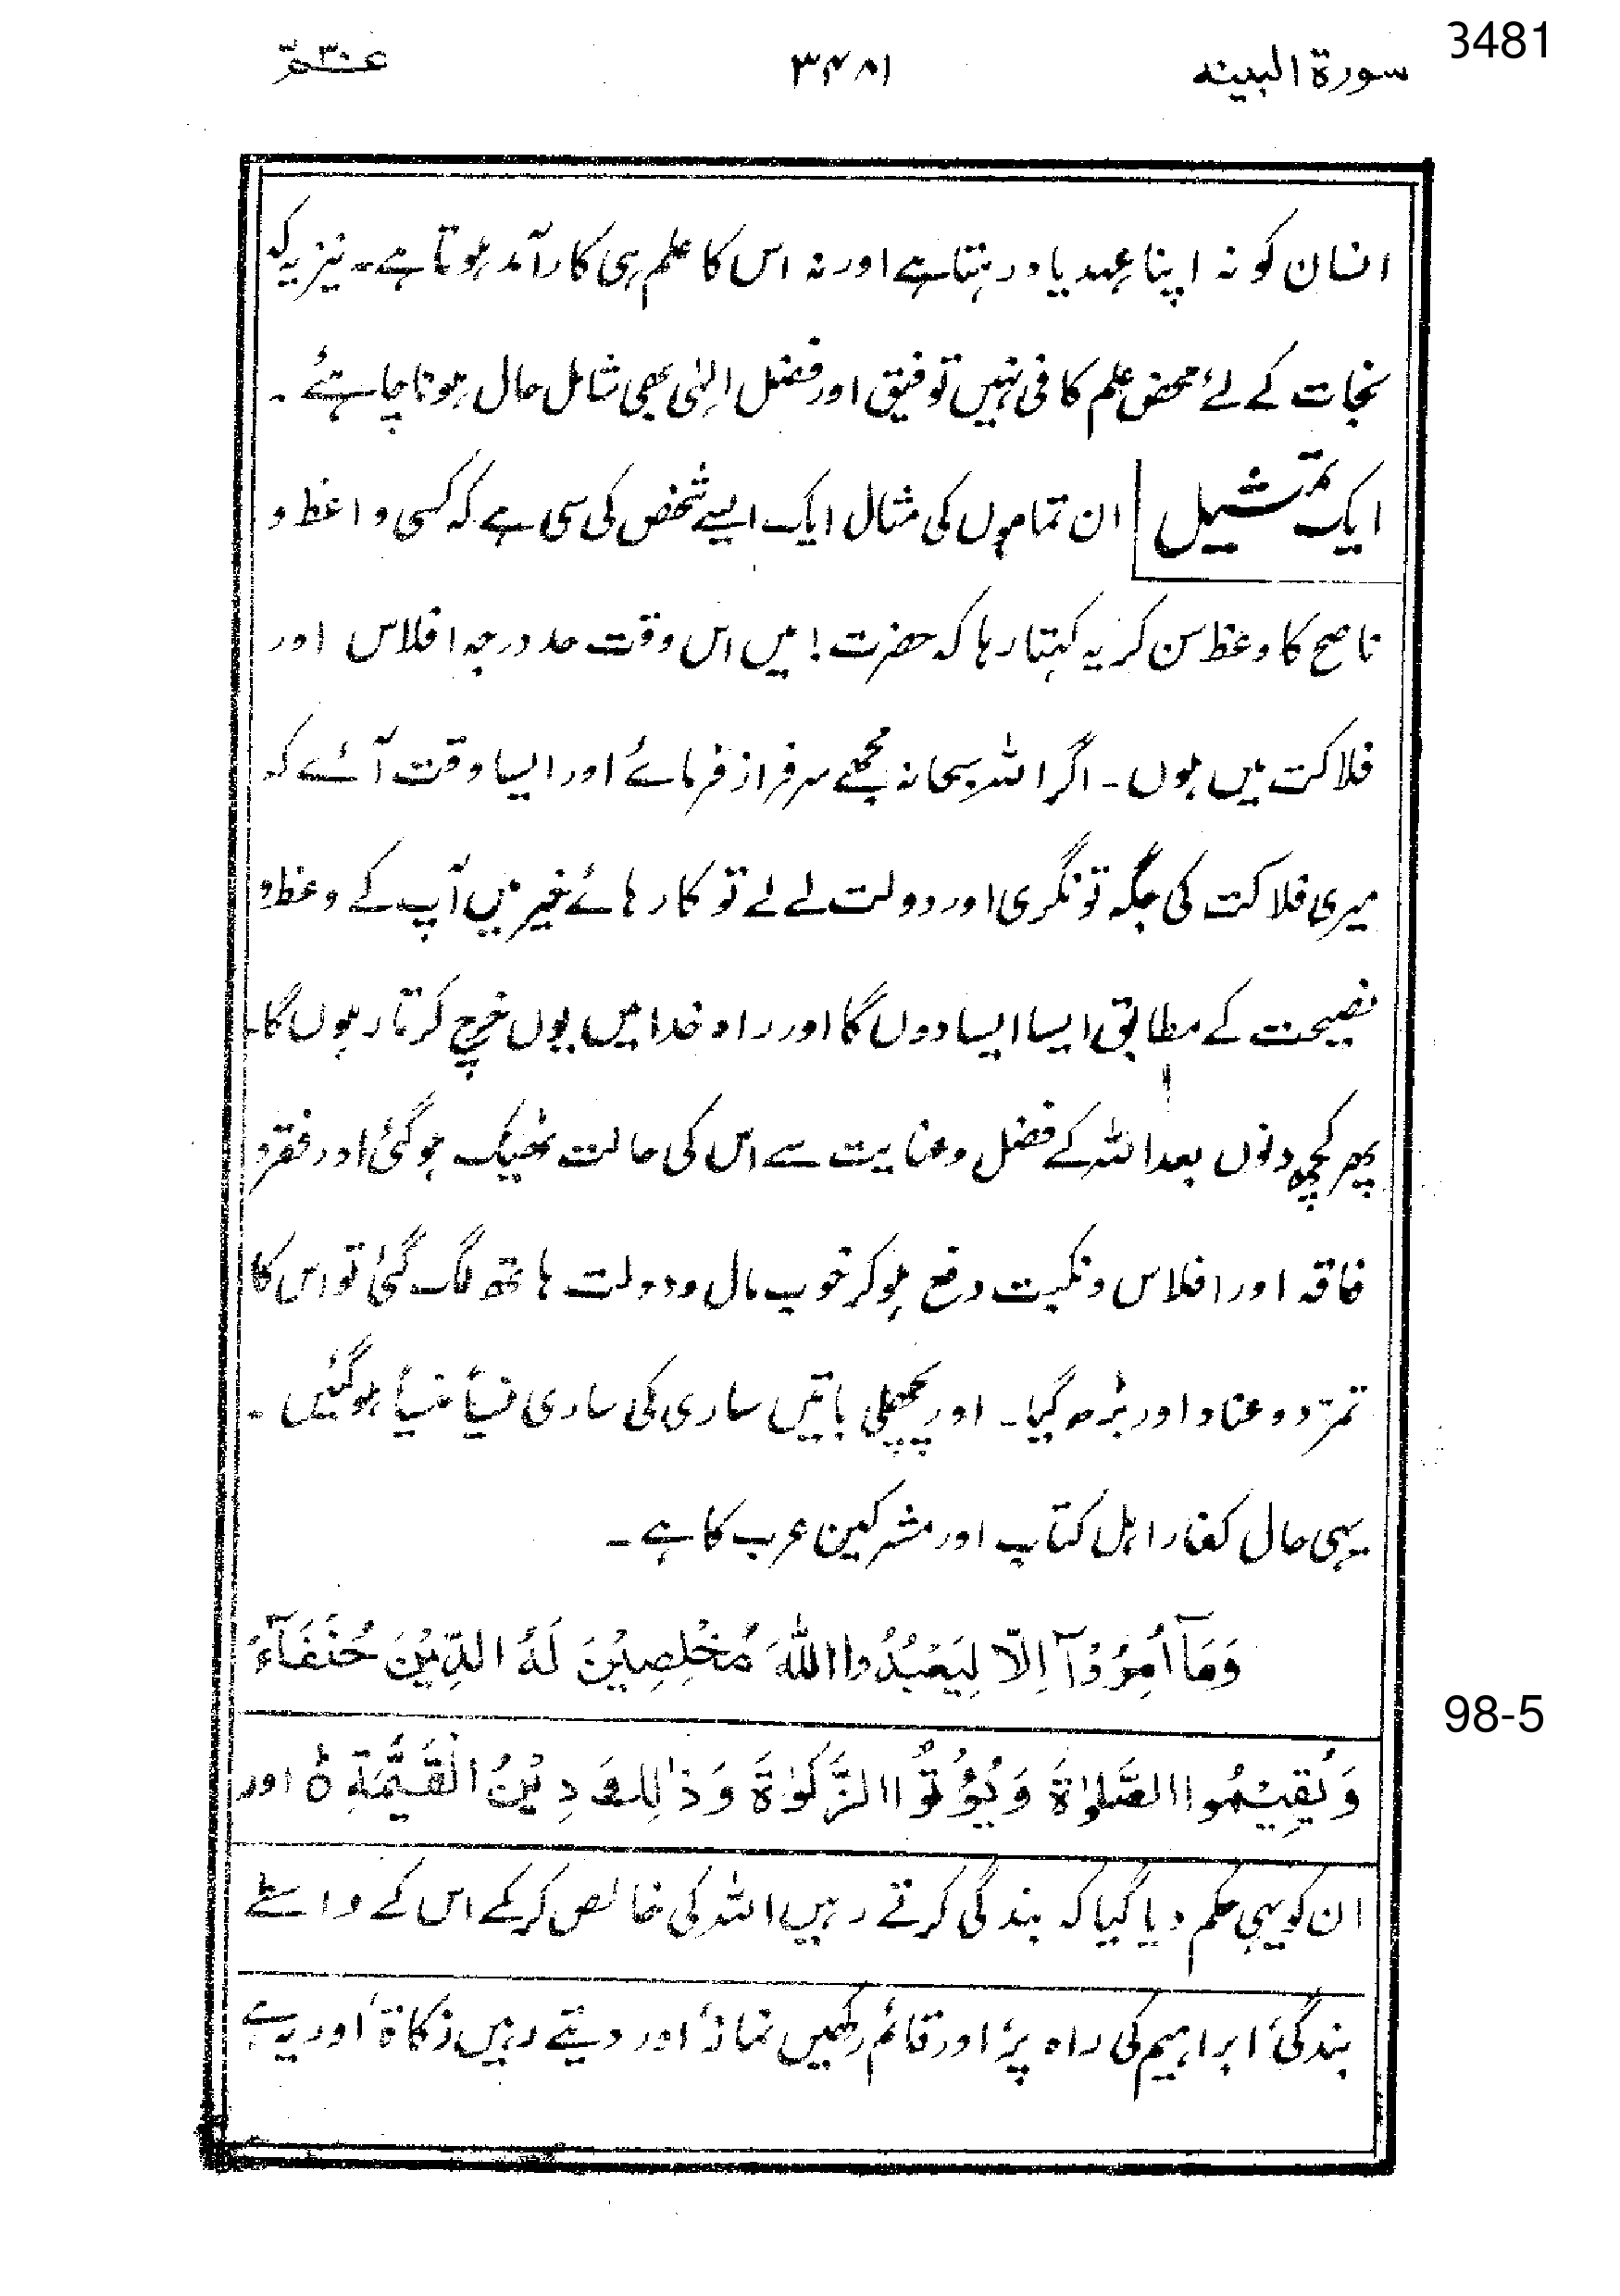 3481
سورۃ البینہ ۳۴۸۱ عم ۳۰
انسان کو نہ اپنا عہد یاد رہتا ہے اور نہ اس کا علم ہی کارآمد ہوتا ہے۔ نیز یہ کہ
نجات کے لئے محض علم کافی نہیں توفیق اور فضل الٰہی بھی شامل حال ہونا چاہئے۔
ایک تمثیل ان تماموں کی مثال ایک ایسے شخص کی سی ہے کہ کسی واعظ و
ناصح کا وعظ سن کر یہ کہتا رہا کہ حضرت! میں اس وقت حد درجہ افلاس اور
فلاکت میں ہوں۔ اگر اللہ سبحانہ مجھے سرفراز فرمائے اور ایسا وقت آئے کہ
میری فلاکت کی جگہ تونگری اور دولت لے لے تو کارہائے خیر میں آپ کے وعظ و
نصیحت کے مطابق ایسا ایسا دوں گا اور راہ خدا میں یوں خرچ کرتا رہوں گا۔
پھر کچھ دنوں بعد اللہ کے فضل و عنایت سے اس کی حالت ٹھیک ہو گئی اور فقر و
فاقہ اور افلاس و نکبت دفع ہو کر خوب مال و دولت ہاتھ لگ گئی تو اس کا
تمرّد و عناد اور بڑھ گیا۔ اور پچھلی باتیں ساری کی ساری نسیاً منسیاً ہو گئیں۔
یہی حال کفار اہل کتاب اور مشرکین عرب کا ہے۔
وَمَآ اُمِرُوْآ اِلَّا لِيَعْبُدُوا اللّٰهَ مُخْلِصِيْنَ لَهُ الدِّيْنَ حُنَفَآءَ
98-5
وَيُقِيْمُوا الصَّلٰوةَ وَيُؤْتُوا الزَّكٰوةَ وَذٰلِكَ دِيْنُ الْقَيِّمَةِ ۵ اور
ان کو یہی حکم دیا گیا کہ بندگی کرتے رہیں اللہ کی خالص کر کے اس کے واسطے
بندگی، ابراہیم کی راہ پر، اور قائم رکھیں نماز، اور دیتے رہیں زکاۃ، اور یہ ہے